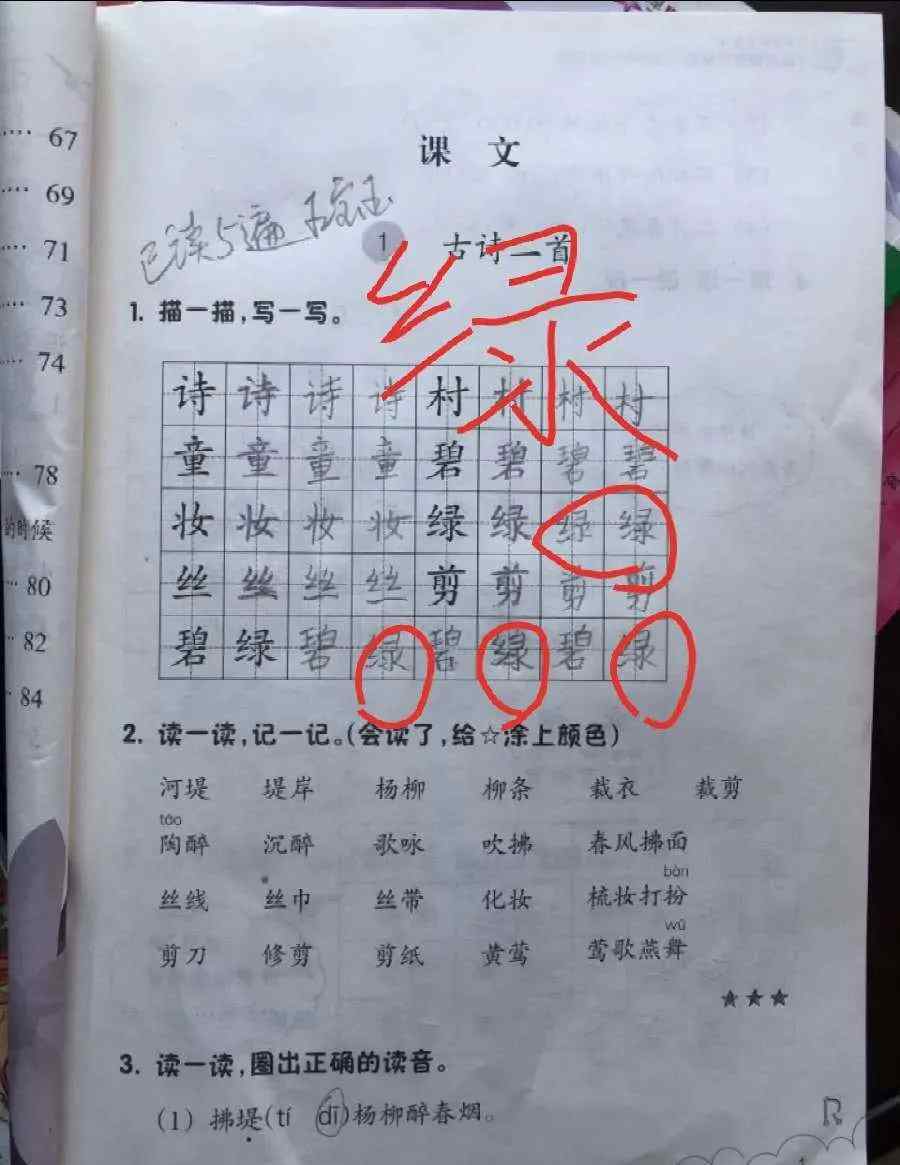 课 文
已读5遍
1 古诗二首
绿
1. 描一描,写一写。
诗 诗 诗 诗 村 村 村 村
童 童 童 童 碧 碧 碧 碧
妆 妆 妆 妆 绿 绿 绿 绿
丝 丝 丝 丝 剪 剪 剪 剪
碧 绿 碧 绿 碧 绿 碧 绿
2. 读一读,记一记。(会读了,给☆涂上颜色)
河堤 堤岸 杨柳 柳条 裁衣 裁剪
táo
陶醉 沉醉 歌咏 吹拂 春风拂面
bàn
丝线 丝巾 丝带 化妆 梳妆打扮
wǔ
剪刀 修剪 剪纸 黄莺 莺歌燕舞
★★★
3. 读一读,圈出正确的读音。
(1) 拂堤(tí dī)杨柳醉春烟。
1
···· 67
···· 69
···· 71
···· 73
···· 74
78
的时候
80
82
84